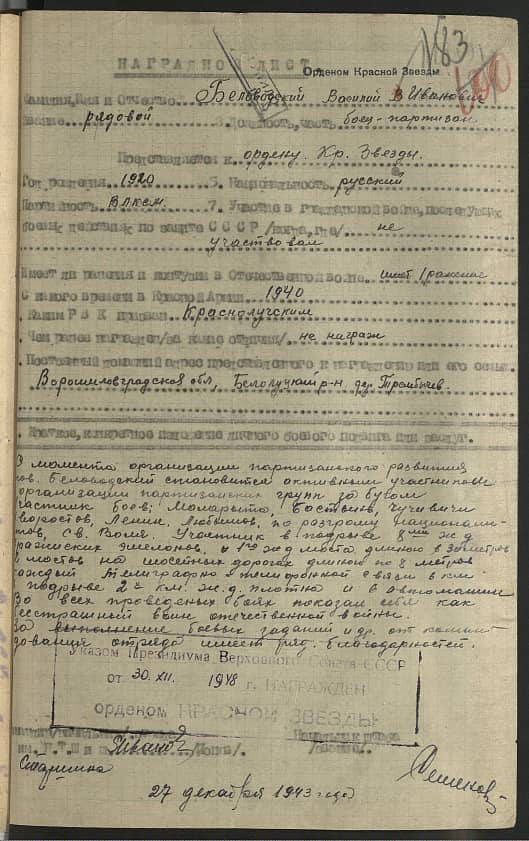 №83
НАГРАДНОЙ ЛИСТ Орденом Красной Звезды
Фамилия, Имя и Отчество Беловодский Василий Иванович
звание рядовой 3. Должность, часть боец-партизан
Представляется к ордену Кр. Звезды.
Год рождения 1920 5. Национальность русский
Партийность Влксм. 7. Участие в гражданской войне, последующих
боевых действиях по защите СССР /когда, где/ не
участвовал
Имеет ли ранения и контузии в Отечественной войне имеет 1 ранение
С какого времени в Красной Армии 1940
Каким РВК призван Краснолучским
Чем ранее награжден/за какие отличия/ не награж
Постоянный домашний адрес представляемого к награждению или его семьи.
Ворошиловградская обл, Белолуцкий р-н дер.
Краткое, конкретное изложение личного боевого подвига или заслуг.
С момента организации партизанского развития
тов. Беловодский становится активным участником
организации партизанских групп за бугом
участник боев:
по разгрому национали-
стов, Участник в подрыве 8ми ж.д
вражеских эшелонов, и 1го ж.д моста длиною в 30 метров
мостов на шосейных дорогах длиною по 8 метров
каждый телеграфно-телефонной связи
подрыве 2х км. ж.д. плотна и автомашин
Во всех проведеных боях показал себя как
бесстрашный воин отечественной войны.
За выполнение боевых заданий и др. от коман-
дования отряда имеет ряд благодарностей.
Указом Президиума Верховного Совета СССР
от 30.XII. 1948 г. НАГРАЖДЕН
орденом КРАСНОЙ ЗВЕЗДЫ
Старшина
27 декабря 1943 года